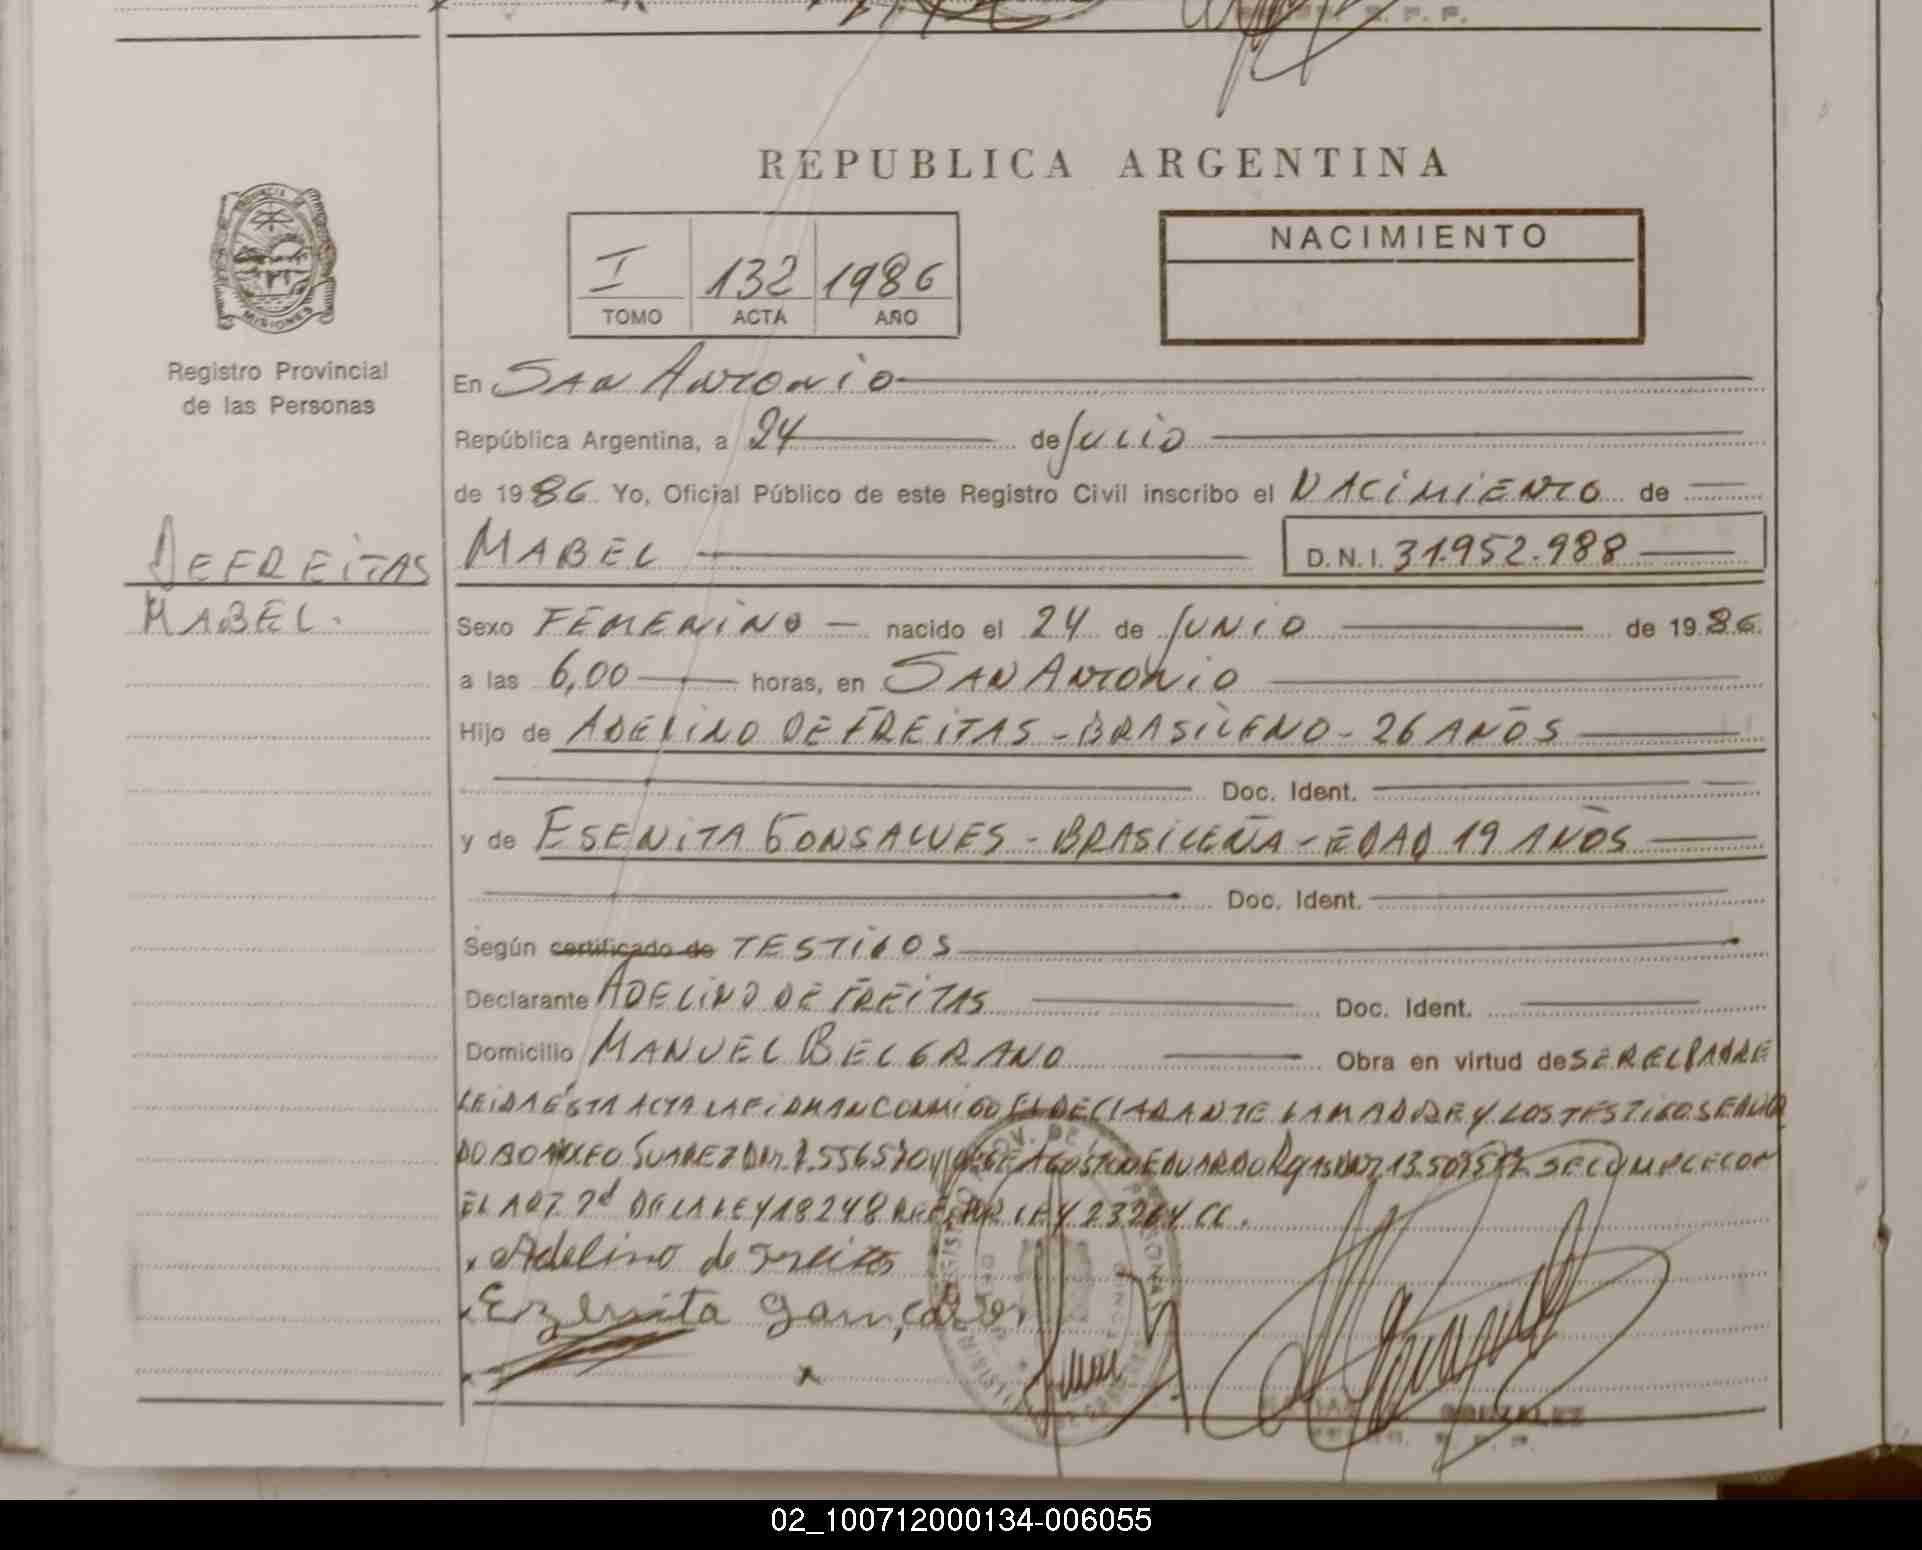 REPUBLICA ARGENTINA
PROVINCIA DE
MISIONES
Registro Provincial
de las Personas
I 132 1986
TOMO ACTA AÑO
NACIMIENTO
En SAN ANTONIO
República Argentina, a 24 de JULIO
de 1986 Yo, Oficial Público de este Registro Civil inscribo el NACIMIENTO de
DEFREITAS
MABEL.
MABEL D.N.I. 31.952.988
Sexo FEMENINO nacido el 24 de JUNIO de 1986
a las 6,00 horas, en SAN ANTONIO
Hijo de ADELINO DE FREITAS - BRASILENO - 26 AÑOS
Doc. Ident.
y de ESENITA GONSALVES - BRASILEÑA - EDAD 19 AÑOS
Doc. Ident.
Según certificado de TESTIGOS
Declarante ADELINO DE FREITAS Doc. Ident.
Domicilio MANUEL BELGRANO Obra en virtud de SER EL PADRE
LEIDA ÉSTA ACTA LA FIRMAN CONMIGO EL DECLARANTE LA MADRE Y LOS TESTIGOS
SUAREZ EDUARDO SE CUMPLE CON
EL ART. 2d DE LA LEY 18248 REF. POR LEY 23264 CC.
x Adelino de Freitas
x Ezenita Gonçalves
x x
GONZALEZ
02_100712000134-006055